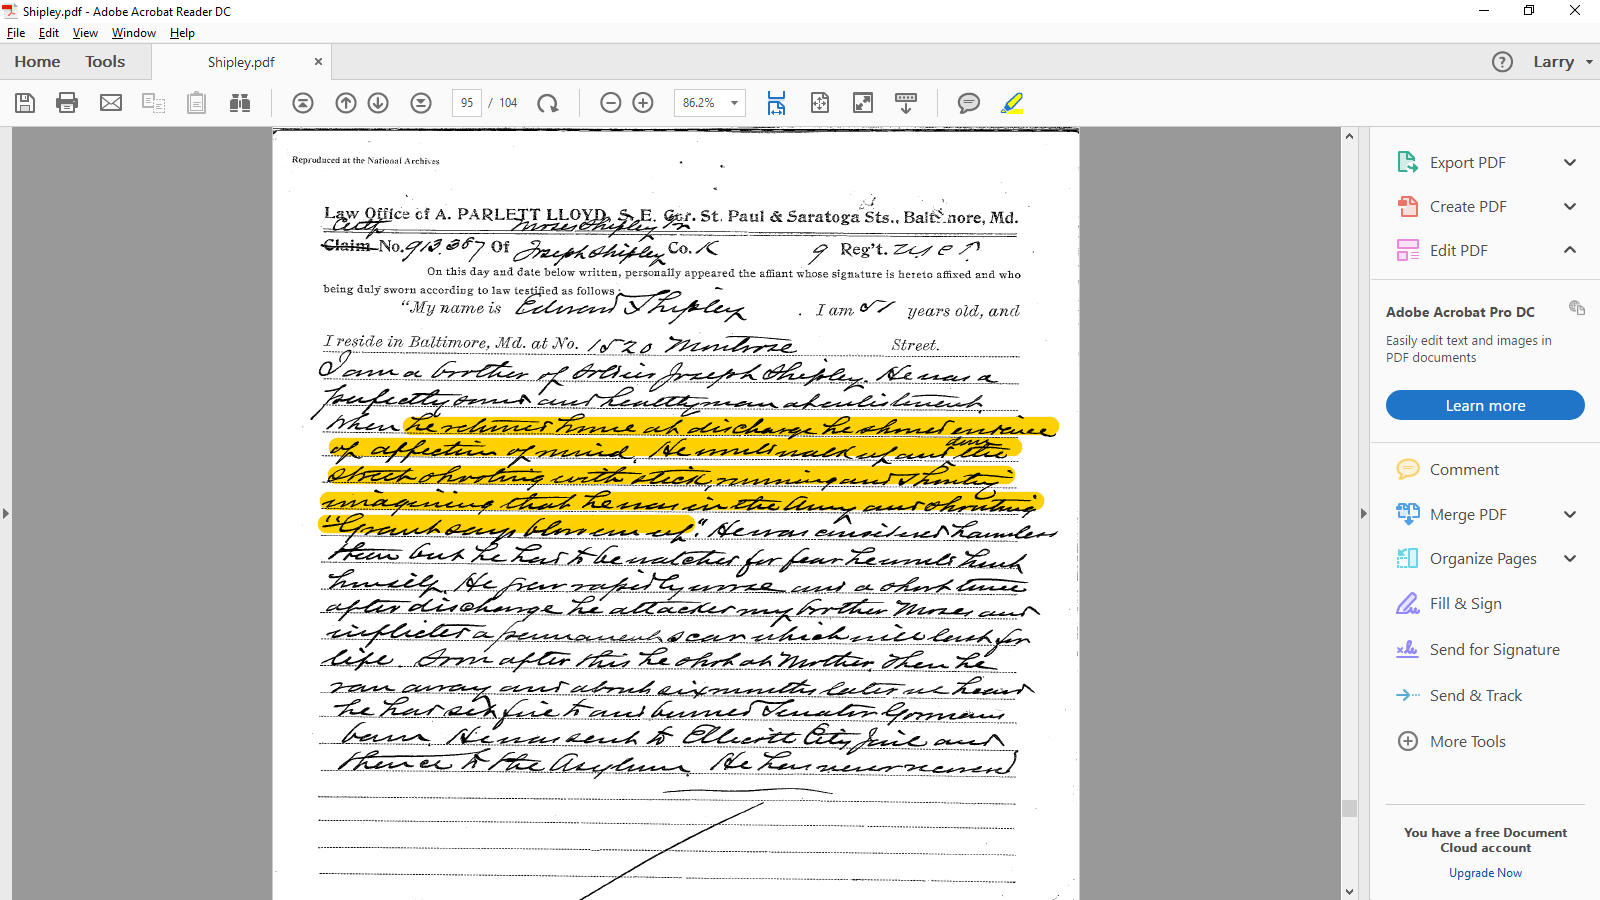 Shipley.pdf - Adobe Acrobat Reader DC
File Edit View Window Help
Home Tools Shipley.pdf × Larry
95 / 104 86.2%
Reproduced at the National Archives
Law Office of A. PARLETT LLOYD, S. E. Cor. St. Paul & Saratoga Sts., Baltimore, Md.
Ctf Moses Shipley
Claim No. 913.387 Of Joseph Shipley Co. K 9 Reg't. U S C T
On this day and date below written, personally appeared the affiant whose signature is hereto affixed and who
being duly sworn according to law testified as follows:
"My name is Edward Shipley. I am 51 years old, and
I reside in Baltimore, Md. at No. 1520 Montrose Street.
I am a brother of soldier Joseph Shipley. He was a
perfectly sound and healthy man at enlistment.
When he returned home at discharge he showed evidence
of affection of mind. He would walk up and down the
street shooting with stick, running and shouting
imagining that he was in the Army and shouting
"Grant says blow em up". He was considered harmless
then but he had to be watched for fear he would hurt
himself. He grew rapidly worse and a short time
after discharge he attacked my brother Moses and
inflicted a permanent scar which will last for
life. Soon after this he shot at Mother. Then he
ran away and about six months later we heard
he had set fire to and burned Senator Gormans
barn. He was sent to Ellicott City Jail and
thence to the Asylum. He has never recovered
Export PDF
Create PDF
Edit PDF
Adobe Acrobat Pro DC
Easily edit text and images in
PDF documents
Learn more
Comment
Merge PDF
Organize Pages
Fill & Sign
Send for Signature
Send & Track
More Tools
You have a free Document
Cloud account
Upgrade Now